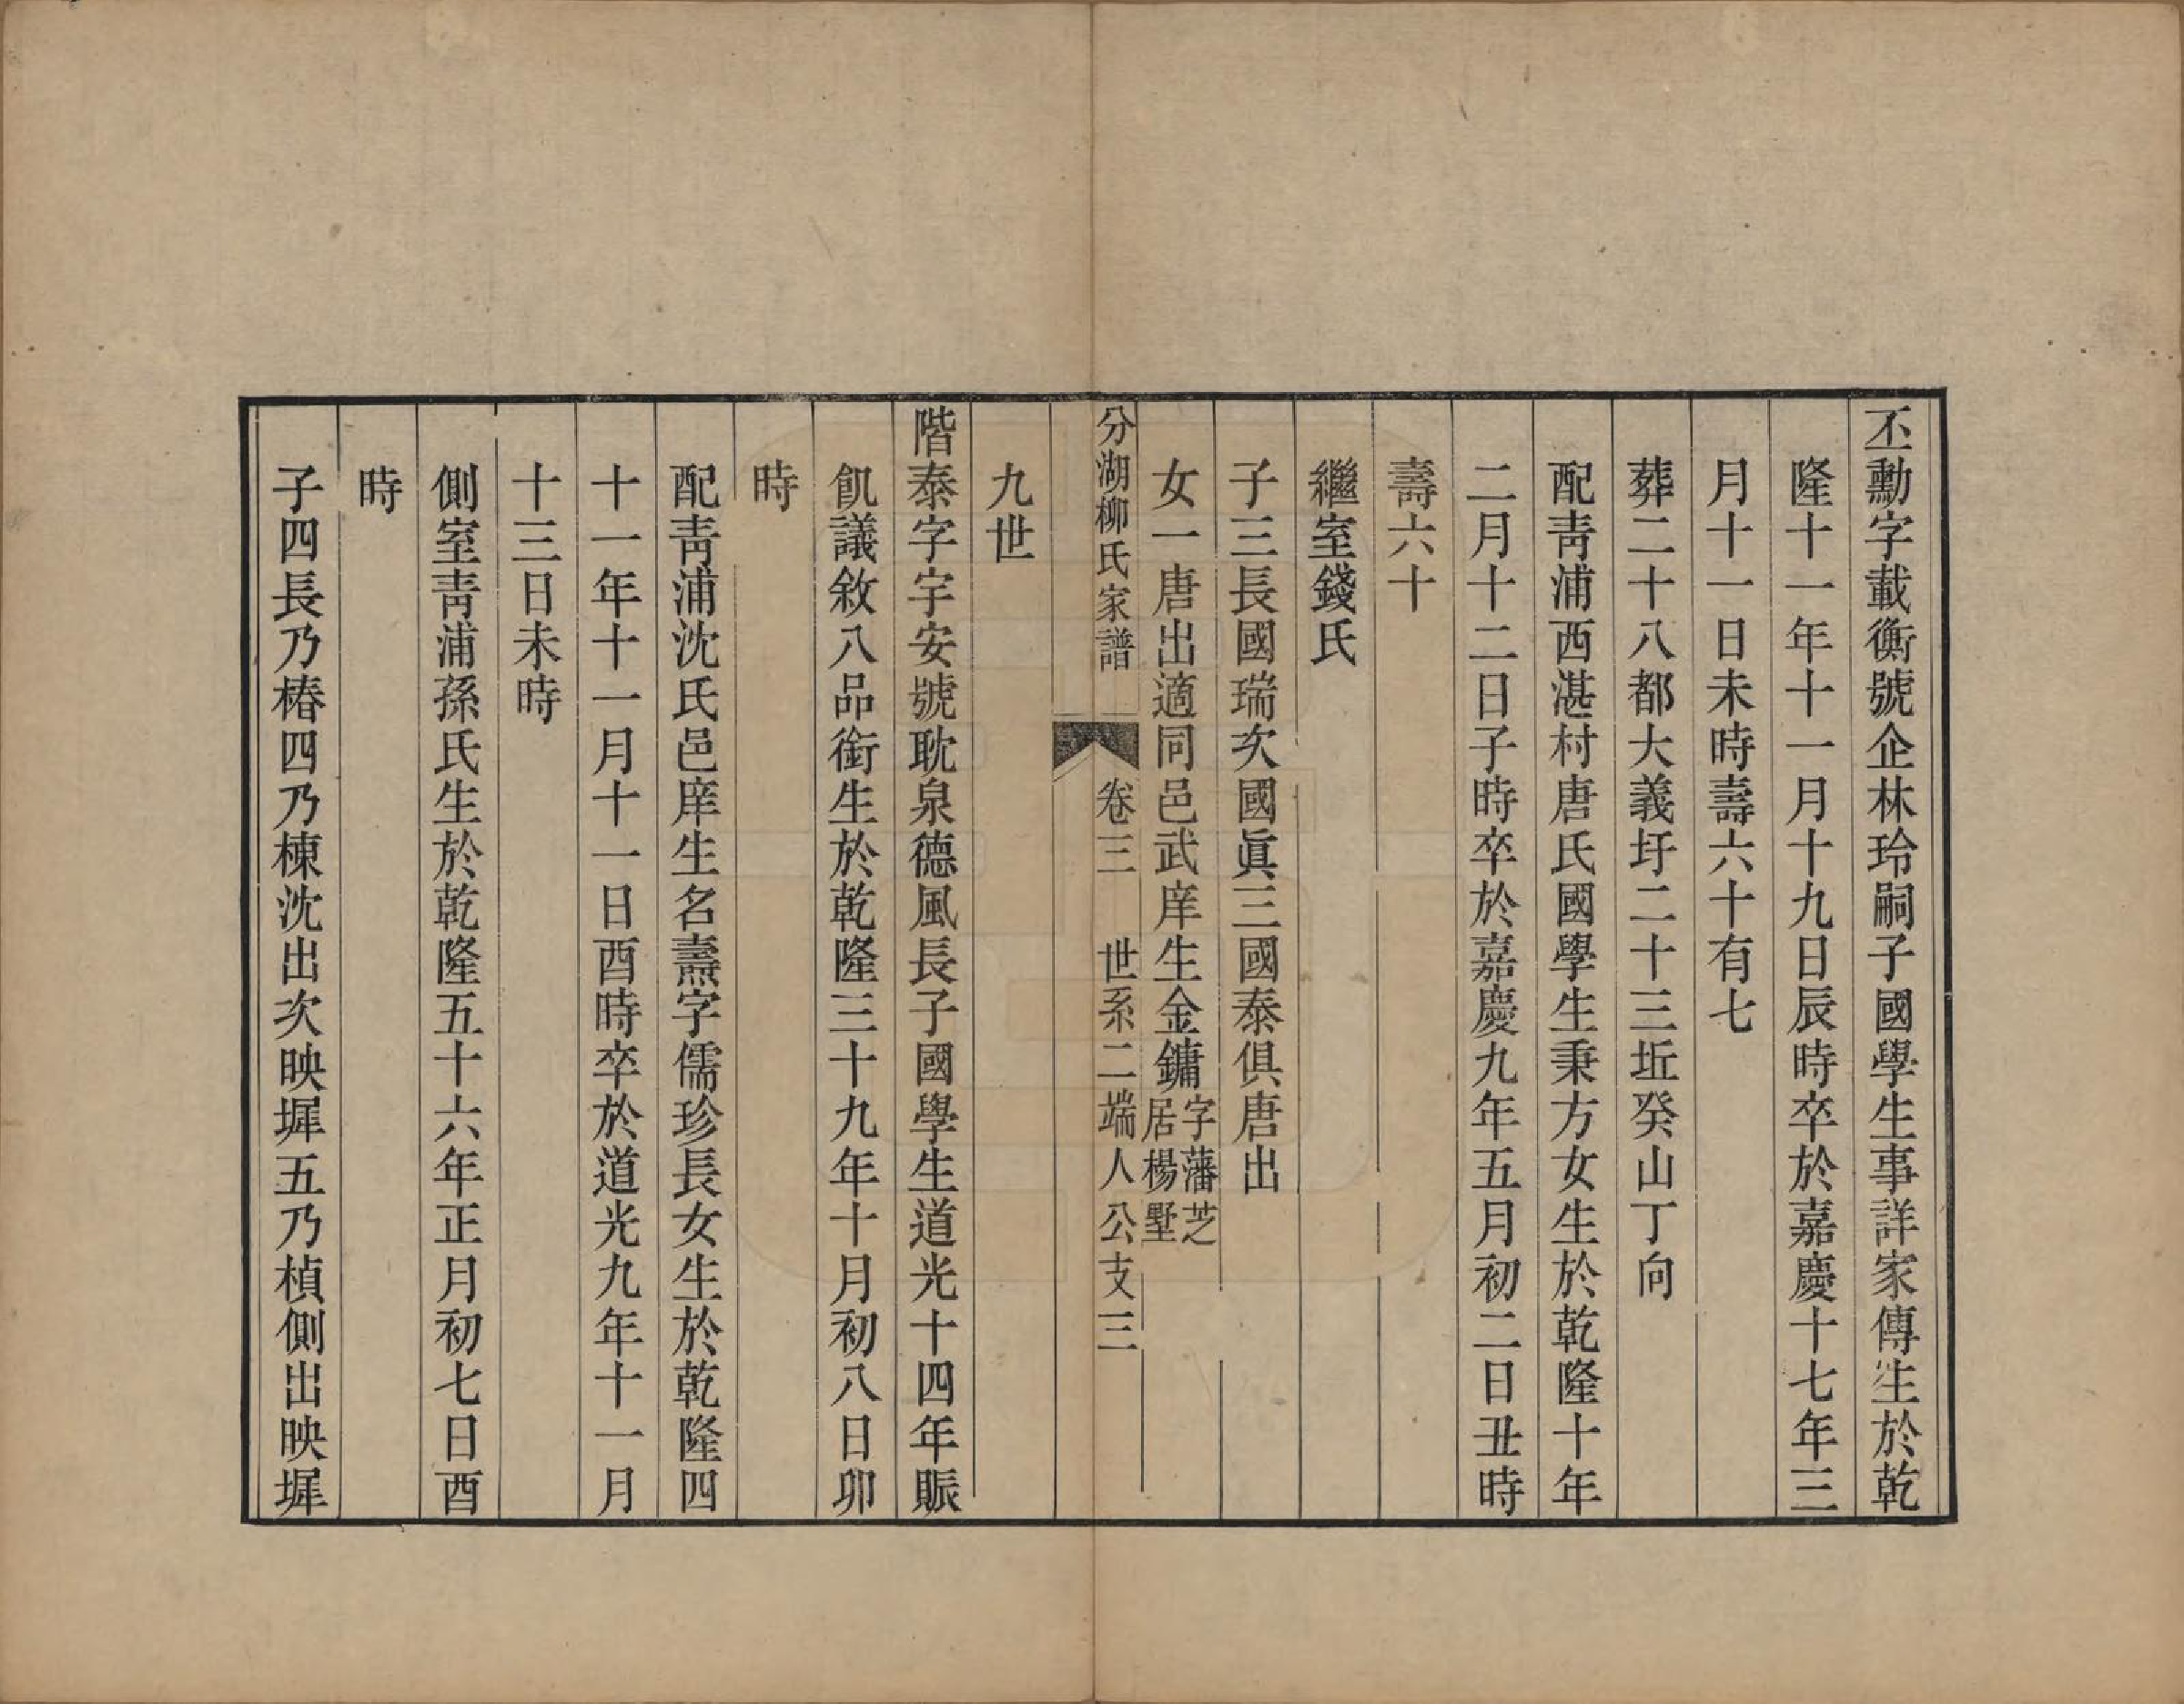 丕勳字載衡號企林玲嗣子國學生事詳家傳生於乾
隆十一年十一月十九日辰時卒於嘉慶十七年三
月十一日未時壽六十有七
葬二十八都大義圩二十三坵癸山丁向
配靑浦西湛村唐氏國學生秉方女生於乾隆十年
二月十二日子時卒於嘉慶九年五月初二日丑時
壽六十
繼室錢氏
子三長國瑞次國眞三國泰俱唐出
女一唐出適同邑武庠生金鏞字藩芝居楊墅
分湖柳氏家譜 卷三 世系二端人公支三
九世
階泰字宇安號耽泉德風長子國學生道光十四年賑
飢議敘八品銜生於乾隆三十九年十月初八日卯
時
配靑浦沈氏邑庠生名燾字儒珍長女生於乾隆四
十一年十一月十一日酉時卒於道光九年十一月
十三日未時
側室靑浦孫氏生於乾隆五十六年正月初七日酉
時
子四長乃椿四乃棟沈出次映墀五乃楨側出映墀